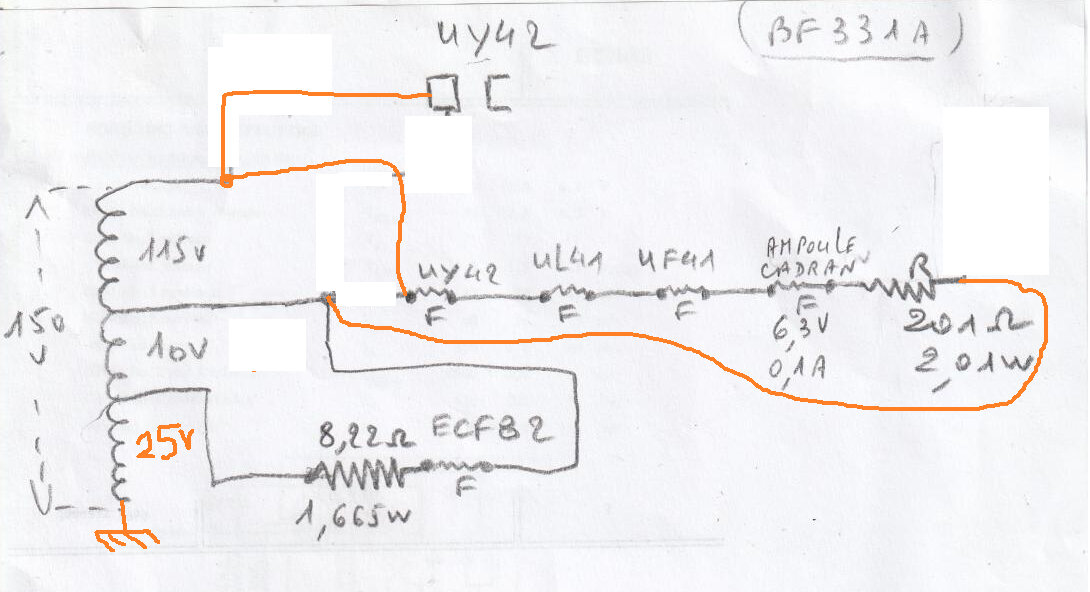 UY42
(BF331A)
115v
150
v
10v
25v
UY42
F
UL41
F
UF41
F
AMPOULE
CADRAN
F
6,3V
0,1A
R
201Ω
2,01W
8,22Ω
ECF82
F
1,665W